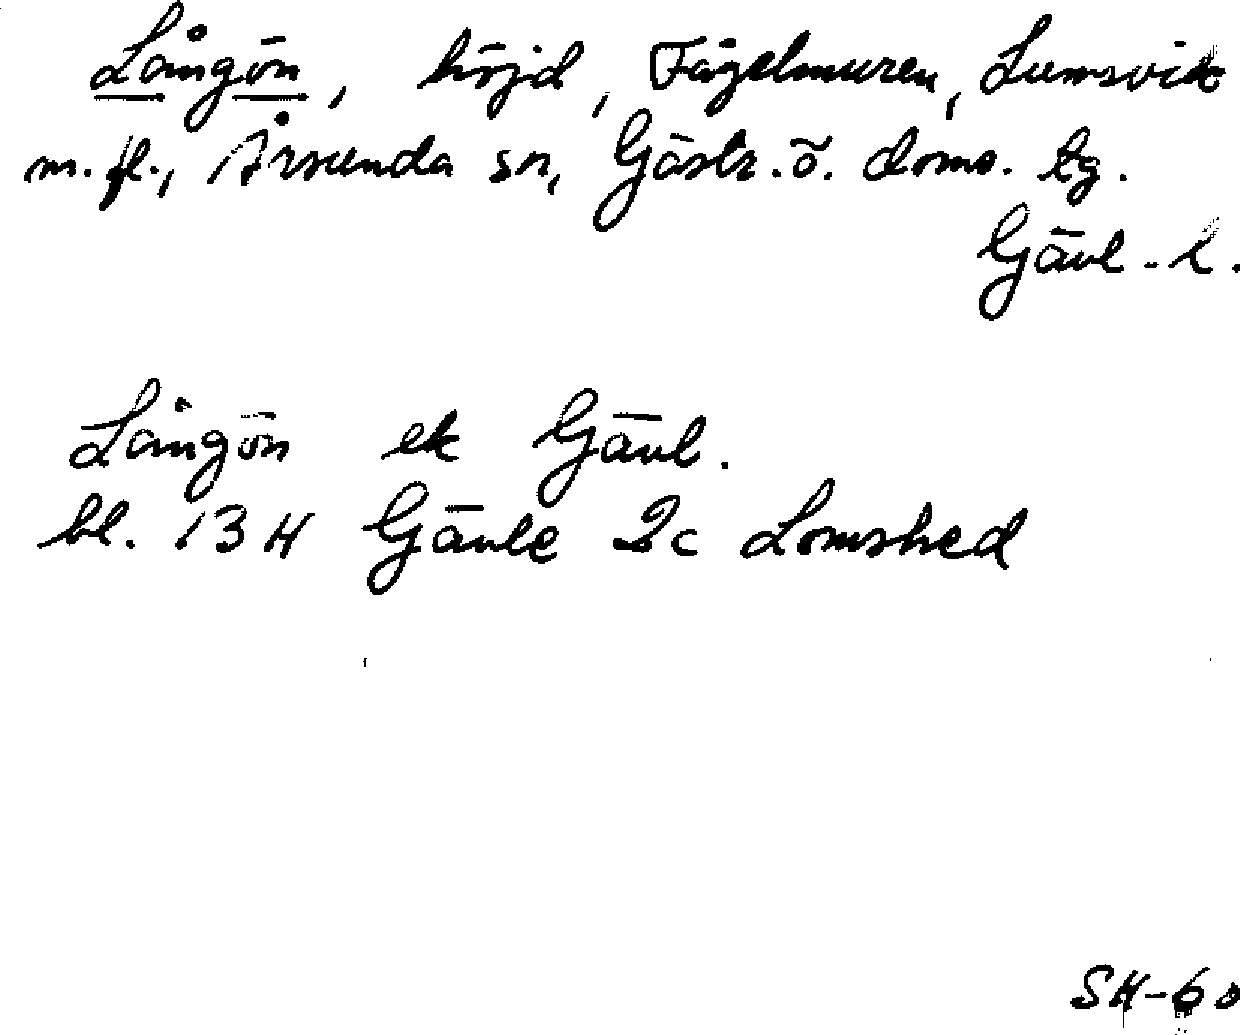 Långön, höjd, Fågelmuren, Lumsvik
m.fl., Årsunda sn, Gästr.ö. doms. tg.
Gävl.l.
Långön ek Gävl.
bl. 13 H Gävle 2c Lomshed